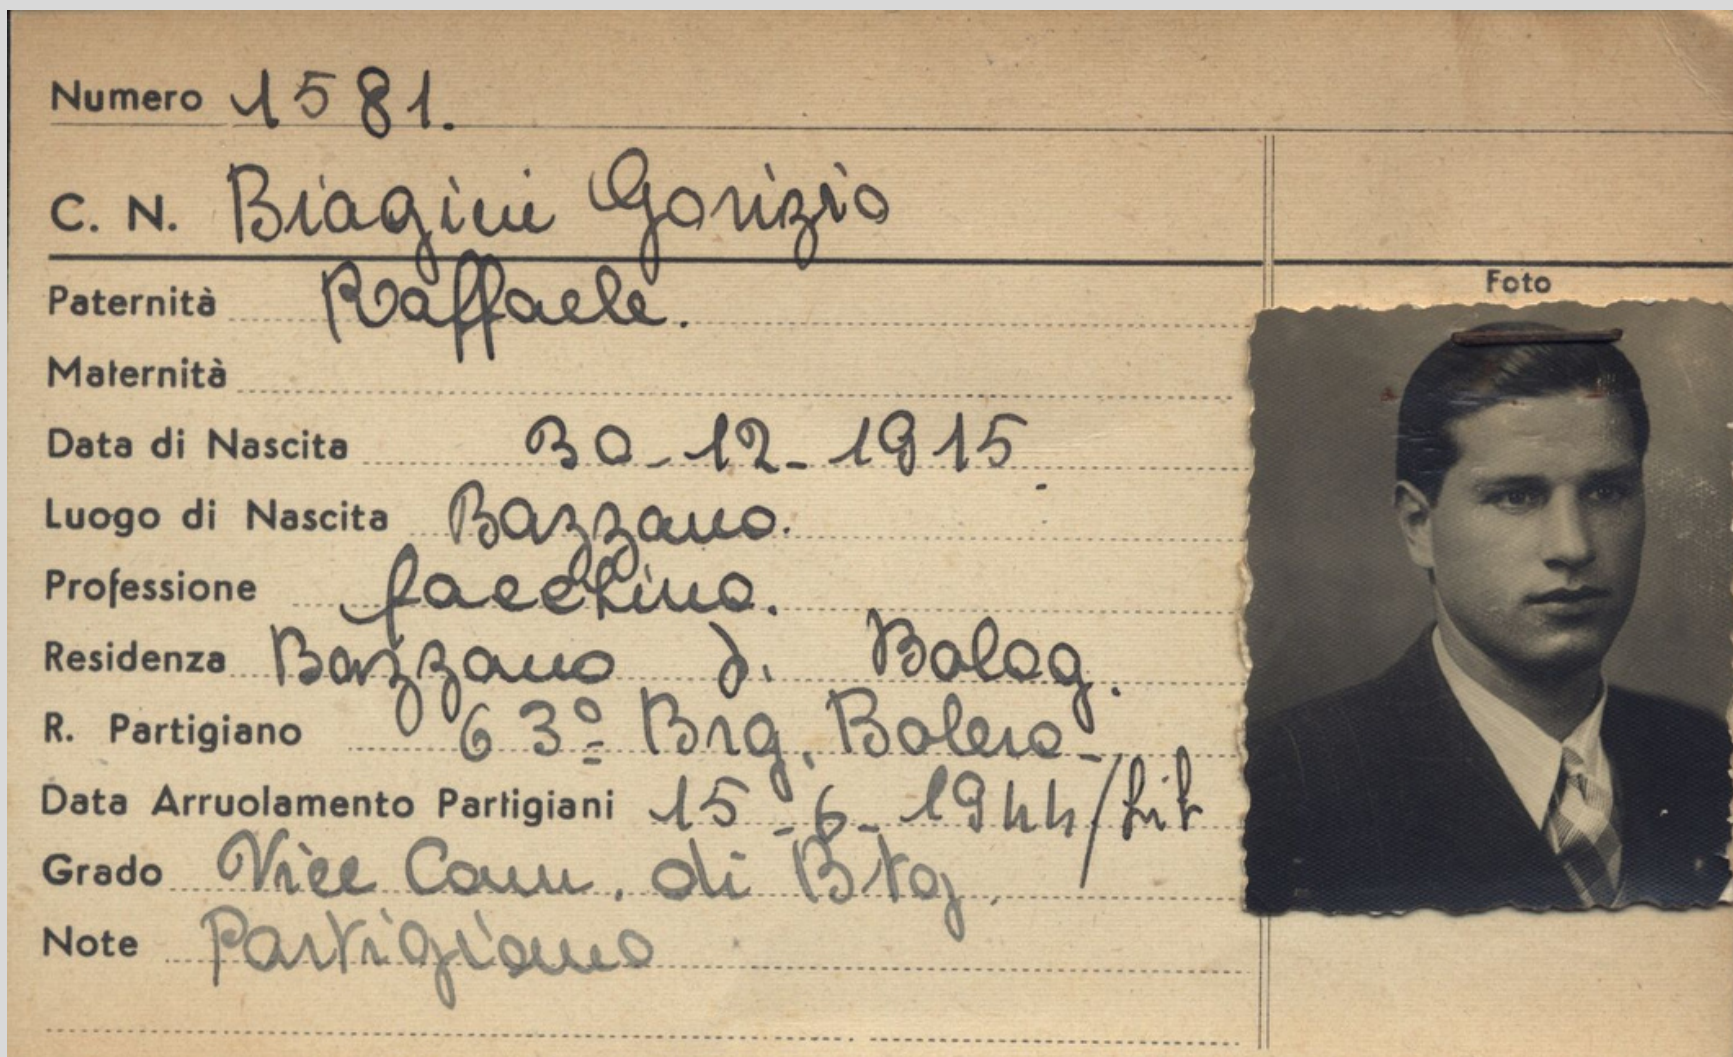 Numero 1581.
C. N. Biagini Gorizio
Foto
Paternità Raffaele.
Maternità
Data di Nascita 30-12-1915
Luogo di Nascita Bazzano.
Professione facchino.
Residenza Bazzano di Bolog.
R. Partigiano 63º Brg. Bolero-
Data Arruolamento Partigiani 15-6-1944/Lib
Grado Vice Com. di Btg.
Note Partigiano